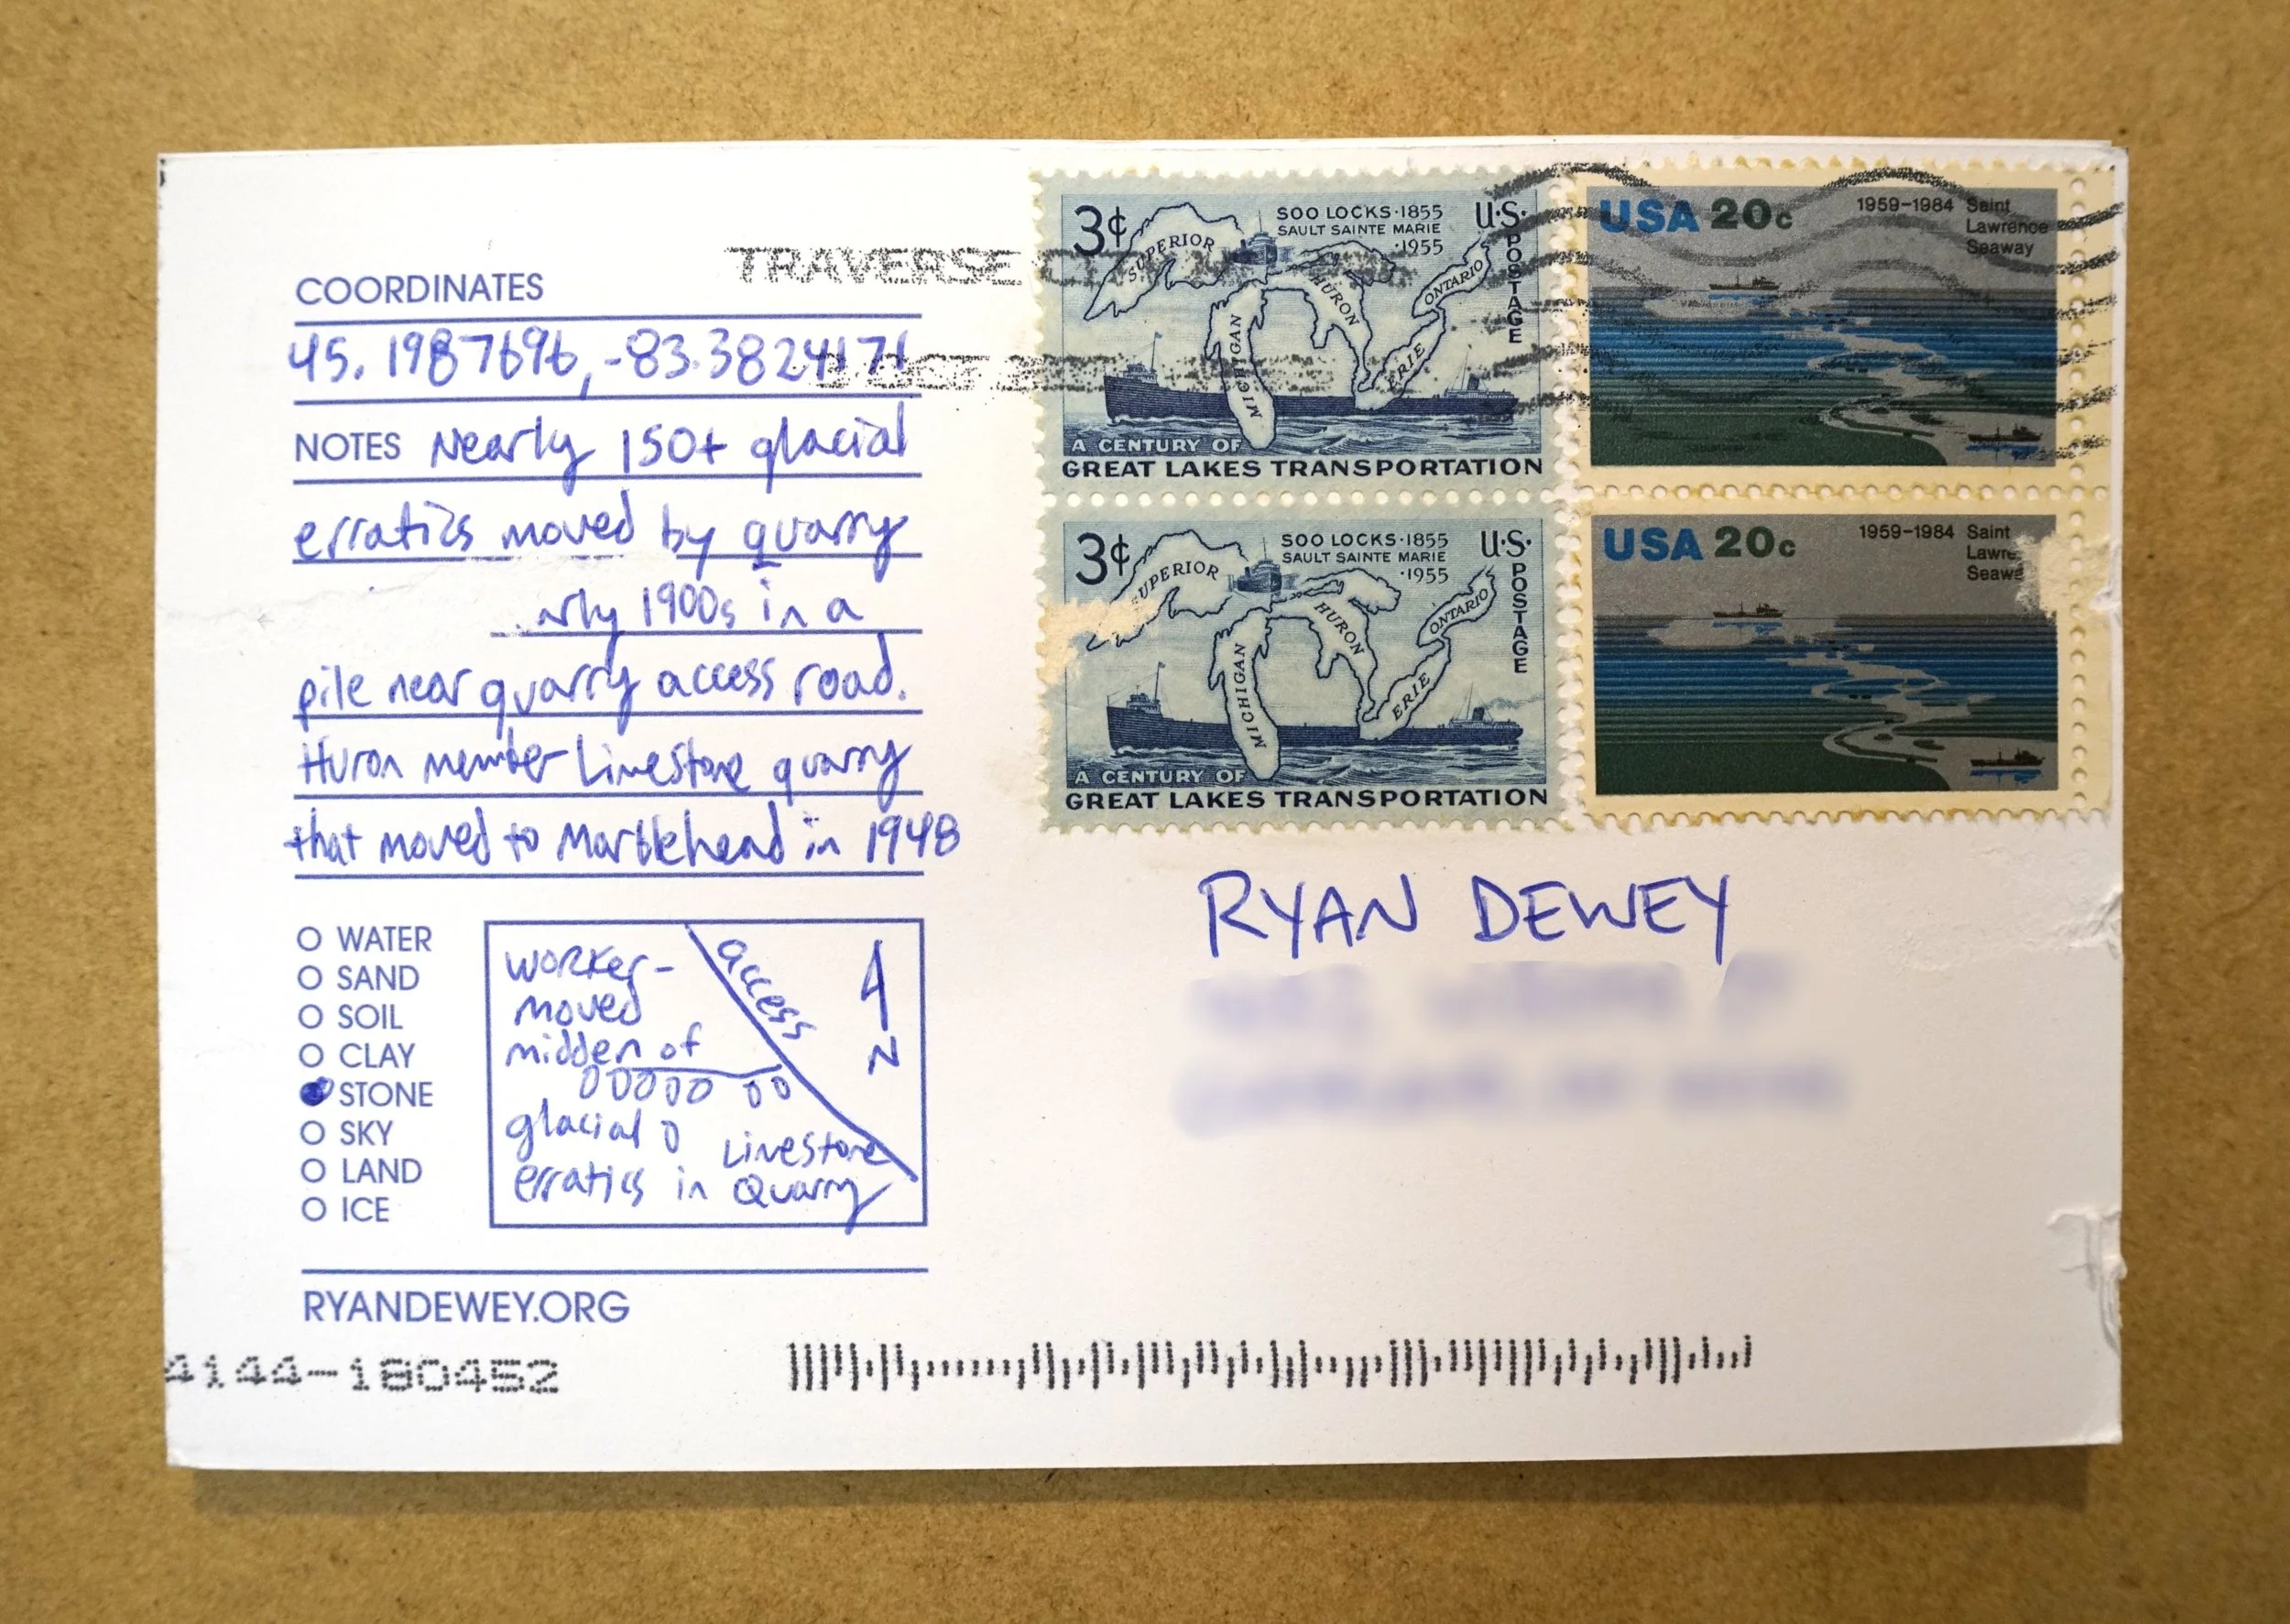 COORDINATES
45.1987696,-83.3824171
NOTES Nearly 150+ glacial
erratics moved by quarry
1900s in a
pile near quarry access road.
Huron member Limestone quarry
that moved to Marblehead in 1948
WATER
SAND
SOIL
CLAY
STONE
SKY
LAND
ICE
worker-
moved
midden of
glacial
erratics in
Limestone
Quarry
access
N
RYANDEWEY.ORG
4144-180452
TRAVERSE
3¢ SOO LOCKS·1855 U·S·
SAULT SAINTE MARIE
·1955
POSTAGE
SUPERIOR
MICHIGAN
HURON
ERIE
ONTARIO
A CENTURY OF
GREAT LAKES TRANSPORTATION
USA 20c 1959-1984 Saint
Lawrence
Seaway
3¢ SOO LOCKS·1855 U·S·
SAULT SAINTE MARIE
·1955
POSTAGE
SUPERIOR
MICHIGAN
HURON
ERIE
ONTARIO
A CENTURY OF
GREAT LAKES TRANSPORTATION
USA 20c 1959-1984 Saint
RYAN DEWEY